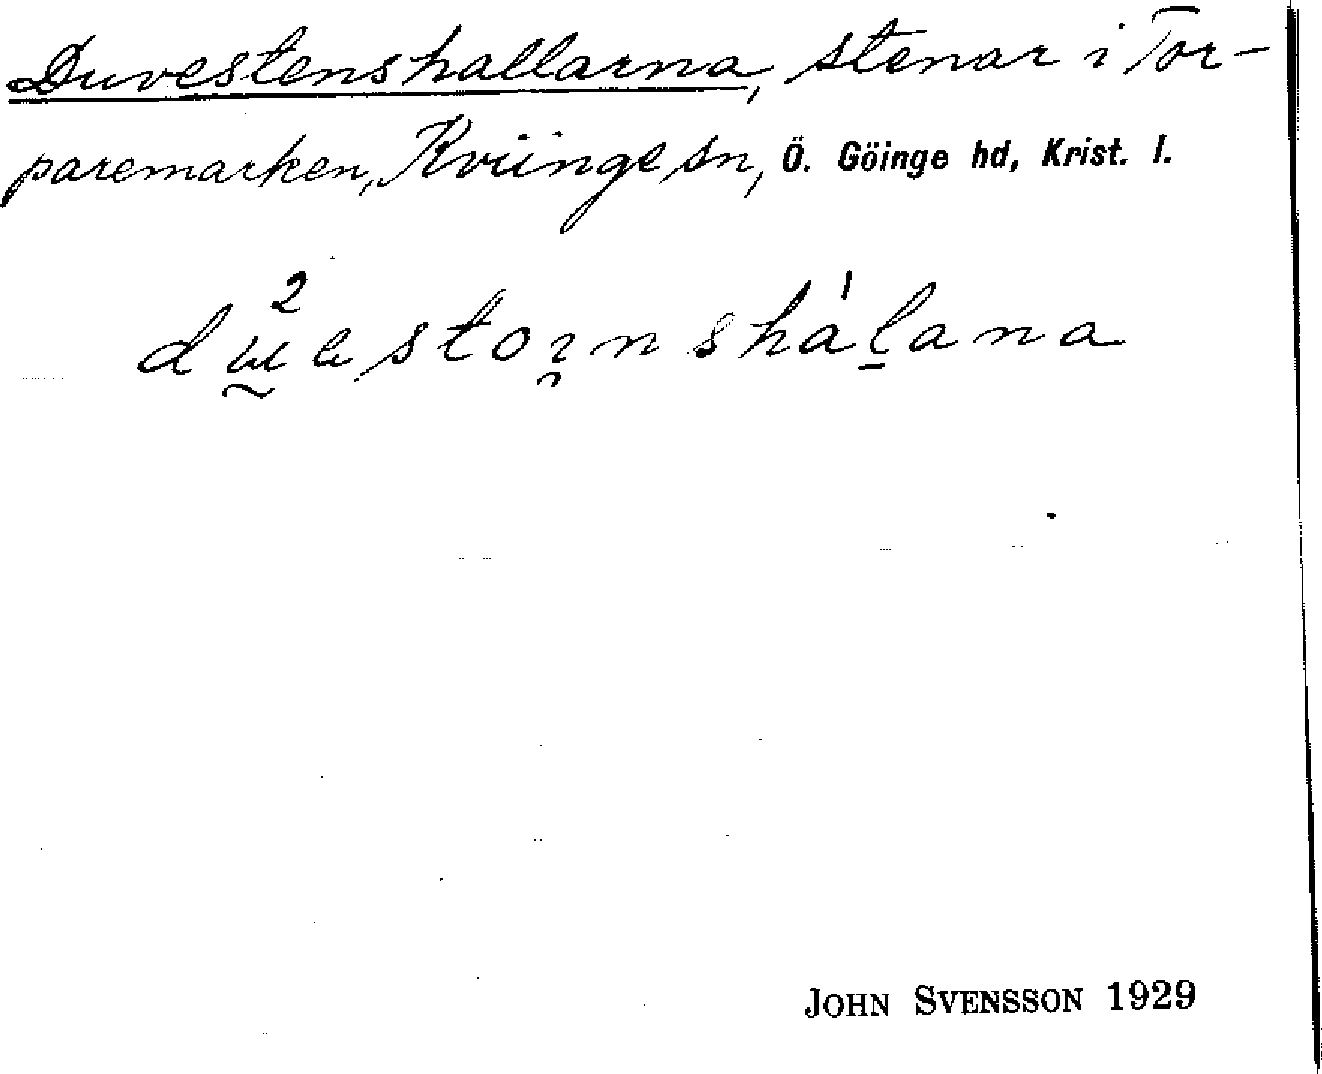 Duvestenshallarna, stenar i Tor-
paremarken, Kviinge sn, Ö. Göinge hd, Krist. l.
JOHN SVENSSON 1929